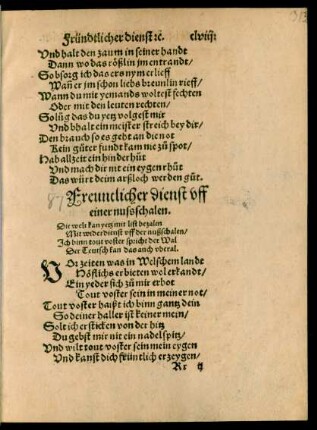 Fründtlicher dienst ꝛc. clviij:
Vnd halt den zaum in seiner handt
Dann wo das rößlin jm entrandt/
So bsorg ich das ers nym erlieff
Wañ er jm schon liebs breunlin rieff/
Wann du mit yemands woltest fechten
Oder mit den leuten rechten/
So lůg das du yetz volgest mir
Vnd bhalt ein meister streich bey dir/
Den brauch so es geht an die not
Kein gůter fundt kam nie zů spot/
Hab allzeit ein hinder hůt
Vnd mach dir nit ein eygen růt
Das würt deim arßloch werden gůt.
Freuntlicher dienst vff
einer nussschalen.
Die welt kan yetz mit list bezalen
Mit widerdienst vff der nußschalen/
Ich binn tout voster spricht der Wal
Der Teutsch kan das auch vberal.
VOr zeiten was in Welschem lande
Höflichs erbieten wol erkandt/
Ein yeder sich zů mir erbot
Tout voster sein in meiner not/
Tout voster haißt ich binn gantz dein
So deiner haller ist keiner mein/
Solt ich ersticken von der hitz
Du gebst mir nit ein nadelspitz/
Vnd wilt tout voster sein mein eygen
Vnd kanst dich früntlich erzeygen/
Rr ij